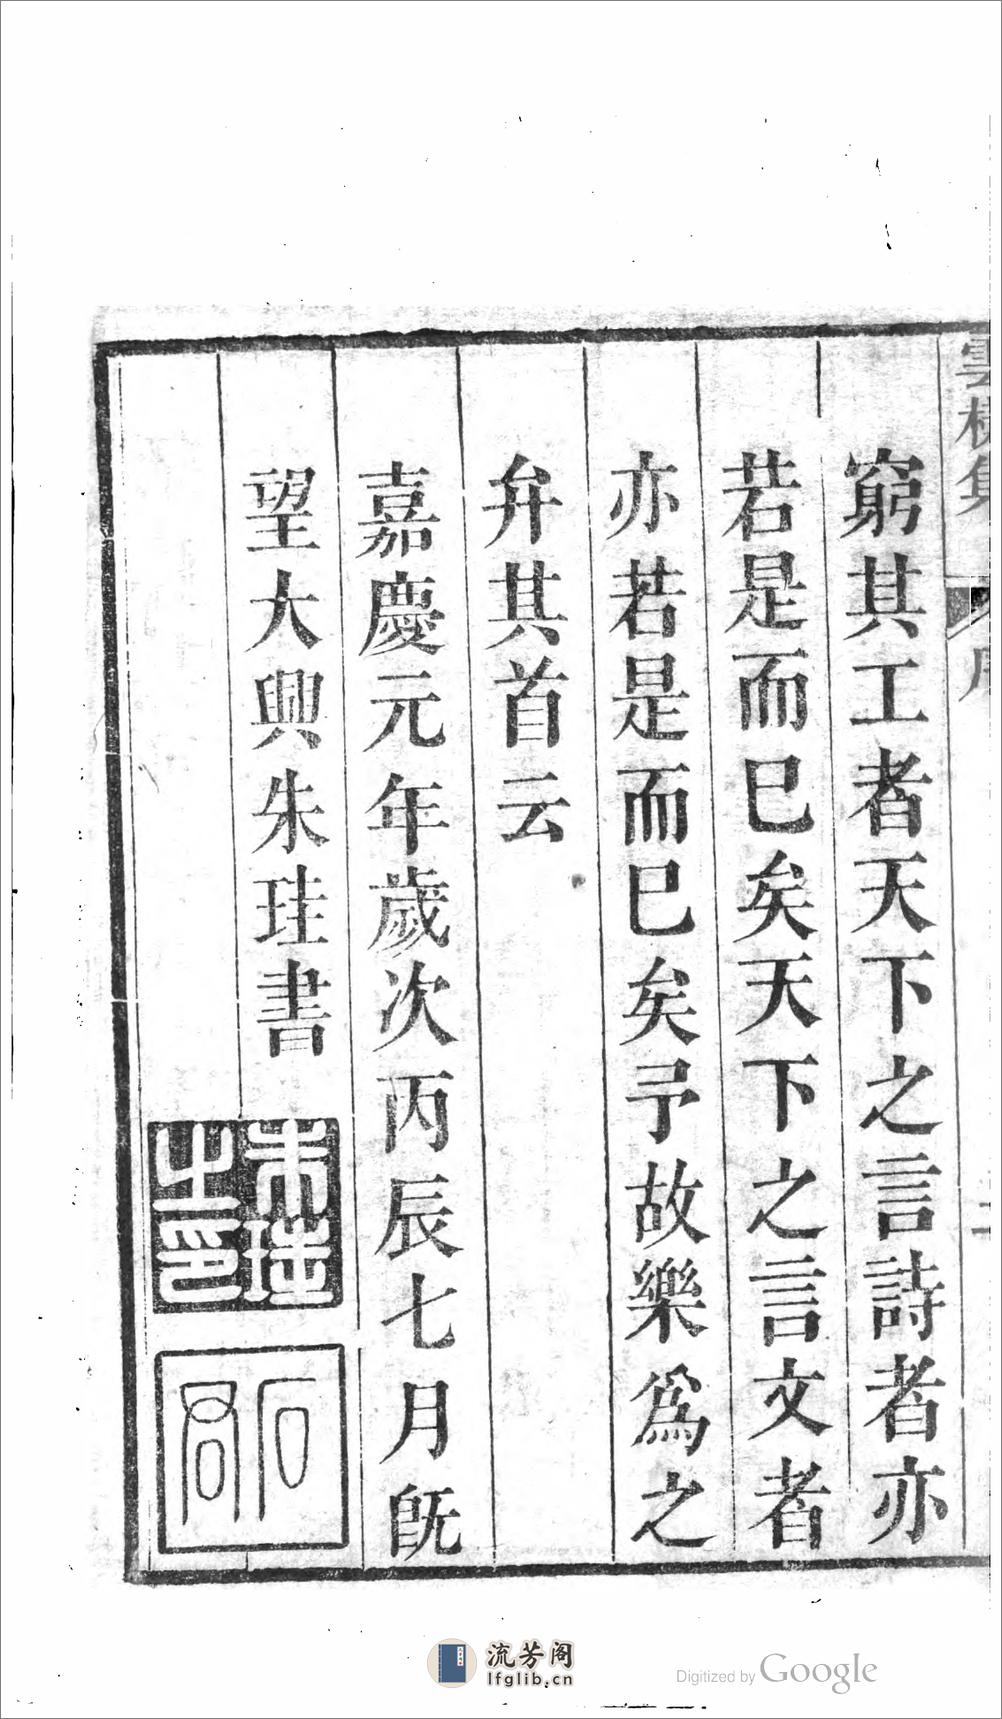 窮其工者天下之言詩者亦
若是而已矣天下之言文者
亦若是而已矣予故樂爲之
弁其首云
嘉慶元年歲次丙辰七月旣
望大興朱珪書
朱珪
之印
石君
流芳阁
lfglib.cn
Digitized by Google